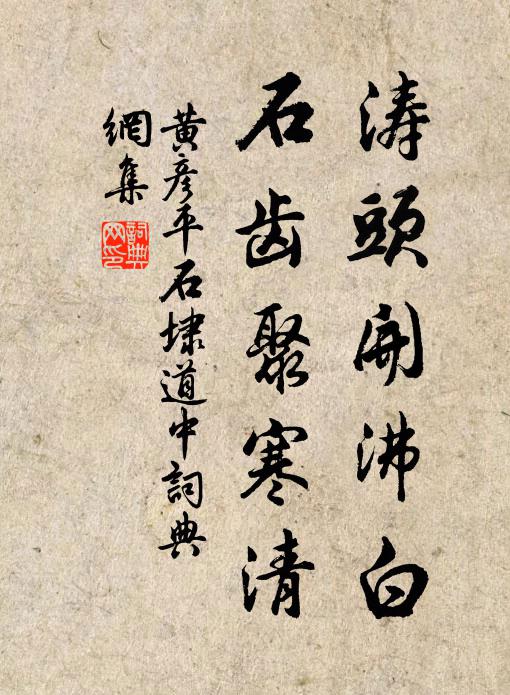 涛頭開沸白
石齿聚寒清
黄彦平石埭道中詞典
網集
詞典
网印